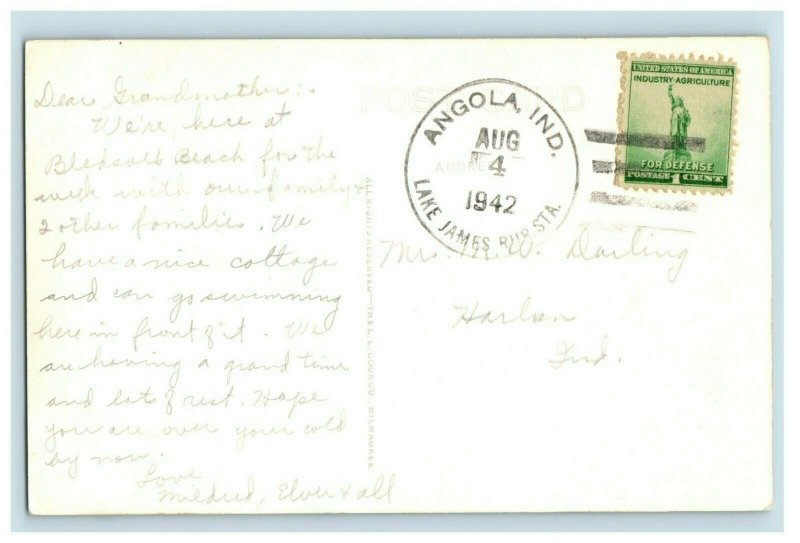 Dear Grandmother:-
We're here at
Bledsoe's Beach for the
week with our family &
2 other families. We
have a nice cottage
and can go swimming
here in front of it. We
are having a grand time
and lots of rest. Hope
you are over your cold
by now.
Love
Mildred, Elver & all
POST CARD
ADDRESS
ANGOLA, IND.
AUG
4
1942
LAKE JAMES RUR. STA.
UNITED STATES OF AMERICA
INDUSTRY-AGRICULTURE
FOR DEFENSE
POSTAGE 1 CENT
Mrs. W. Darling
Harlan
Ind.
ALL RIGHTS RESERVED — THE L. L. COOK CO., MILWAUKEE